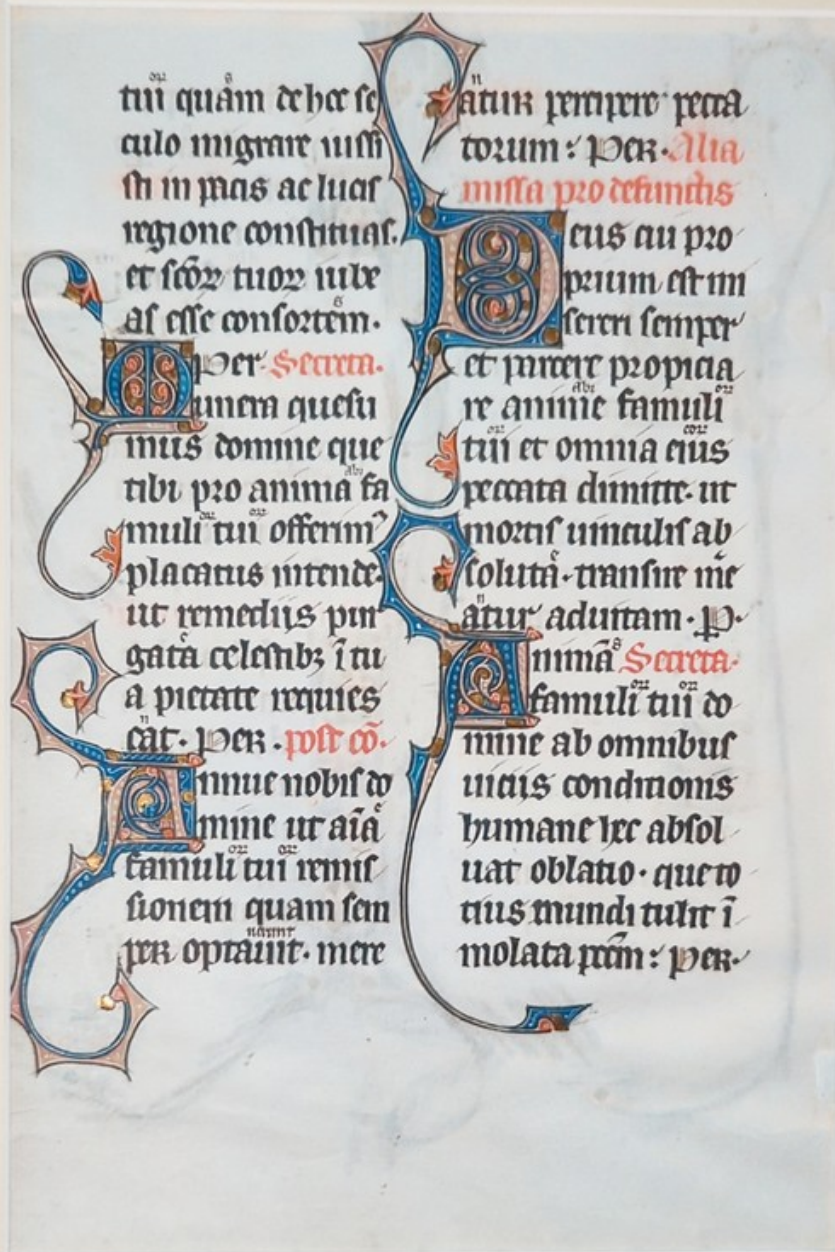 tui quam de hoc se
culo migrare iussi
sti in pacis ac lucis
regione constituas.
et scōꝝ tuoꝝ iube
as esse consortem.
Per. Secreta.
Munera quesu
mus domine que
tibi pro anima fa
muli tui offerimꝰ
placatus intende.
ut remediis pur
gata celestibꝫ ī tu
a pietate requies
cat. Per. post cō.
Annue nobis do
mine ut aīa
famuli tui remis
sionem quam sem
per optauit. mere
atur percipere pecca
torum: Per. Alia
missa pro defunctis
Deus cui pro
prium est mi
sereri semper
et parcere propicia
re anime famuli
tui et omnia eius
peccata dimitte. ut
mortis uinculis ab
soluta. transire me
atur ad uitam. P.
Anima Secreta.
famuli tui do
mine ab omnibus
uiciis conditionis
humane hec absol
uat oblatio. que to
tius mundi tulit ī
molata pctm: Per.